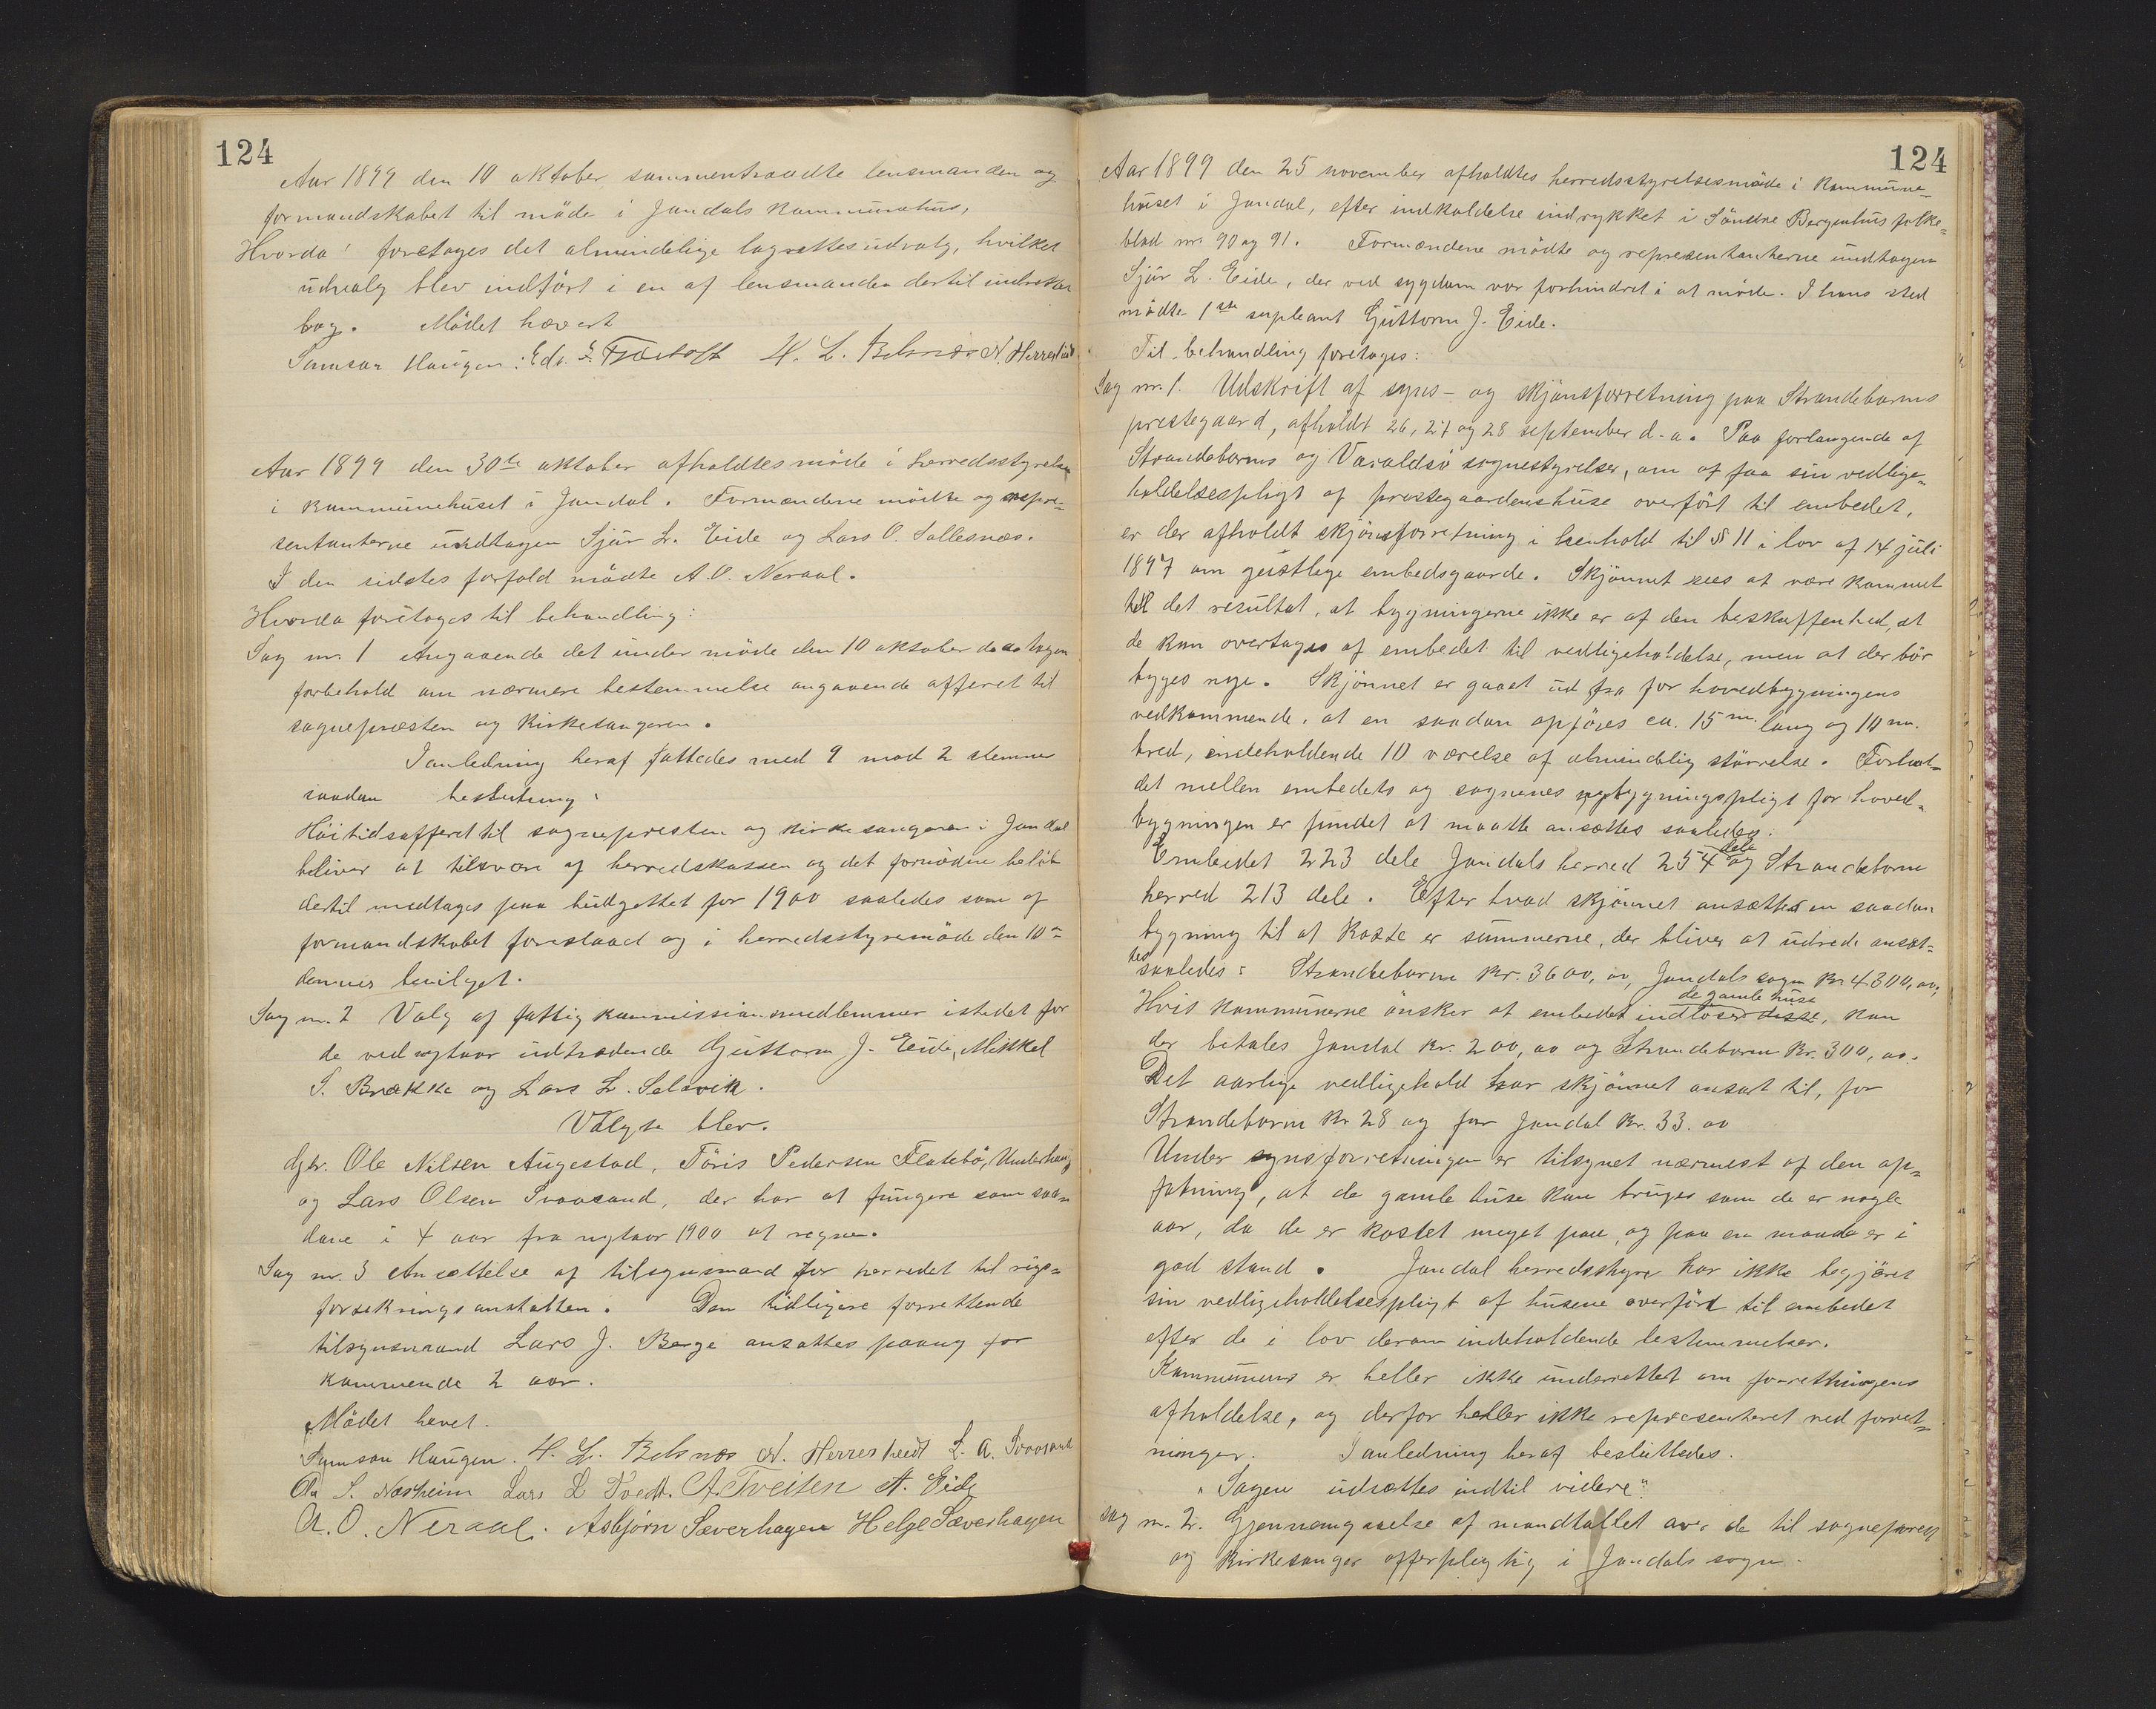 124
Aar 1899 den 10 oktober sammentraadte lensmanden og
formandskabet til møde i Jondals kommunehus,
Hvorda: foretages det almindelige lagrettesudvalg, hvilket
udvalg blev indført i en af lensmanden dertil indrettet
bog. Mødet hævet
Samson Haugen. Edv. H. L. Belsnæs N. Herrestvedt
Aar 1899 den 30te oktober afholdtes møde i herredsstyrelsen
i kommunehuset i Jondal. Formændene mødte og repre-
sentanterne undtagen Sjur L. Eide og Lars O. Sollesnæs.
I den sidstes forfald mødte A. O. Neraal.
Hvorda foretages til behandling:
Sag nr. 1 Angaaende det under møde den 10 oktober d.a. tagen
forbehold om nærmere bestemmelse angaaende offeret til
sognepræsten og kirkesangeren.
I anledning heraf fattedes med 9 mod 2 stemmer
saadan beslutning:
Høitidsofferet til sognepresten og kirkesangeren i Jondal
bliver at tilsvare af herredskassen og det fornødne beløb
dertil medtages paa budgettet for 1900 saaledes som af
formandskabet foreslaad og i herredsstyremøde den 10de
dennes bevilget.
Sag nr. 2 Valg af fattigkommissionsmedlemmer istedet for
de ved nytaar udtrædende Guttorm J. Eide, Mikkel
S. Brække og Lars L. Selsvik.
Valgte blev.
Gbr. Ole Nilsen Augestad, Tøris Pedersen Flatebø, Underhaug
og Lars Olsen Svaasand, der har at fungere som saa-
dane i 4 aar fra nytaar 1900 at regne.
Sag nr. 3 Ansættelse af tilsynsmand for herredet til rigs-
forsikringsanstalten. Den tidligere forrettende
tilsynsmand Lars J. Berge ansattes paany for
kommende 2 aar.
Mødet hevet.
Samson Haugen. H. L. Belsnæs N. Herrestvedt L. A. Svaasand
Ola S. Næsheim Lars L Tvedt. A. Tveiten A. Eide
A. O. Neraal. Asbjørn Sæverhagen Helge Sæverhagen
124
Aar 1899 den 25 november afholdtes herredsstyrelsesmøde i kommune-
huset i Jondal, efter indkaldelse indrykket i Søndre Bergenhus folke-
blad nr. 90 og 91. Formændene mødte og representanterne undtagen
Sjur L. Eide, der ved sygdom var forhindret i at møde. I hans sted
mødte 1ste supleant Guttorm J. Eide.
Til behandling foretages:
Sag nr. 1. Udskrift af syns- og skjønsforretning paa Strandebarms
prestegaard, afholdt 26, 27 og 28 september d.a. Paa forlangende af
Strandebarms og Varaldsø sognestyrelser, om af faa sin vedlige-
holdelsespligt af prestegaardenshuse overført til embedet,
er der afholdt skjønsforretning i henhold til § 11 i lov af 14 juli
1897 om geistlige embedsgaarde. Skjønnet sees at være kommet
til det resultat, at bygningerne ikke er af den beskaffenhed, at
de kan overtages af embedet til vedligeholdelse, men at der bør
bygges nye. Skjønnet er gaaet ud fra for hovedbygningens
vedkommende, at en saadan opføres ca. 15 m. lang og 10 m.
bred, indeholdende 10 værelse af almindelig størrelse. Forhol-
det mellen embedets og sognenes nybygningspligt for hoved-
bygningen er fundet at maatte ansættes saaledes:
Embedet 223 dele Jondals herred 254 dele og Strandebarm
herred 213 dele. Efter hvad skjønnet ansætter en saadan
bygning til at koste er summerne, der bliver at udrede ansat-
tes saaledes: Strandebarm kr. 3600,00, Jondals sogn kr 4300,00,
Hvis kommunerne ønsker at embedet indløser disse de gamle huse, kan
der betales Jondal kr. 200,00 og Strandebarm kr. 300,00.
Det aarlige vedligehold har skjønnet ansat til, for
Strandebarm kr 28 og for Jondal kr. 33.00
Under synsforretningen er tilsynet nærmest af den op-
fatning, at de gamle huse kan bruges som de er nogle
aar, da de er kostet meget paa, og paa en maade er i
god stand. Jondal herredsstyre har ikke begjæret
sin vedligeholdelsespligt af husene overført til embedet
efter de i lov derom indeholdende bestemmelser.
Kommunens er heller ikke underrettet om forretningens
afholdelse, og derfor heller ikke representeret ved forret-
ninger. I anledning heraf besluttedes.
"Sagen udsættes indtil videre".
Sag nr. 2. Gjennemgaaelse af mandtallet over de til sogneprest
og kirkesanger offerpligtig i Jondals sogn.